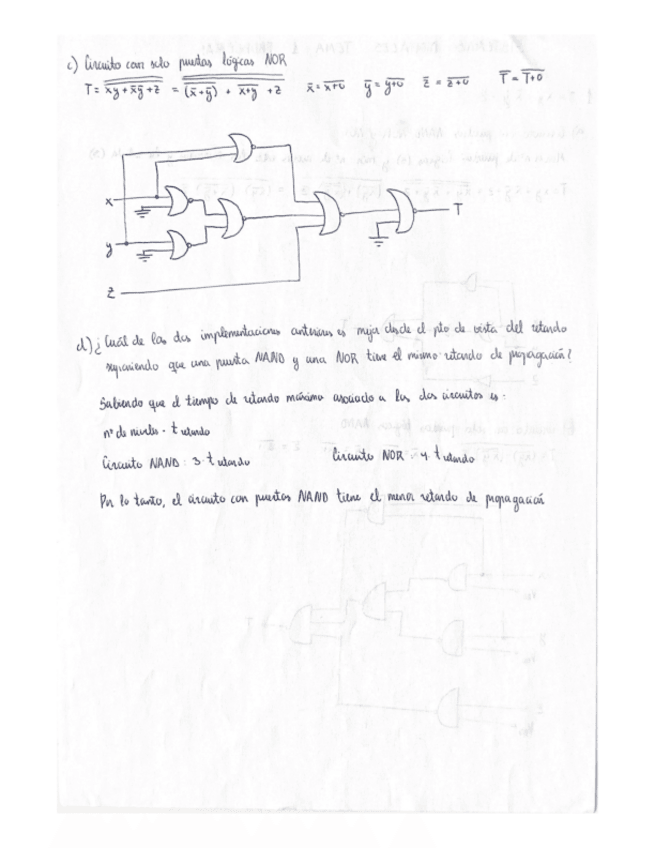 c) Circuito con solo puertas lógicas NOR
T = \overline{\overline{xy + \bar{x}\bar{y} + z}} = \overline{\overline{\overline{(\bar{x}+\bar{y})} + \overline{x+y} + z}} \bar{x} = \overline{x+0} \bar{y} = \overline{y+0} \bar{z} = \overline{z+0} \bar{T} = \overline{T+0}
x
T
y
z
d) ¿Cuál de las dos implementaciones anteriores es mejor desde el pto de vista del retardo
suponiendo que una puerta NAND y una NOR tiene el mismo retardo de propagación?
Sabiendo que el tiempo de retardo máximo asociado a los dos circuitos es:
nº de niveles · t retardo
Circuito NAND: 3 · t retardo Circuito NOR: 4 · t retardo
Por lo tanto, el circuito con puertas NAND tiene el menor retardo de propagación